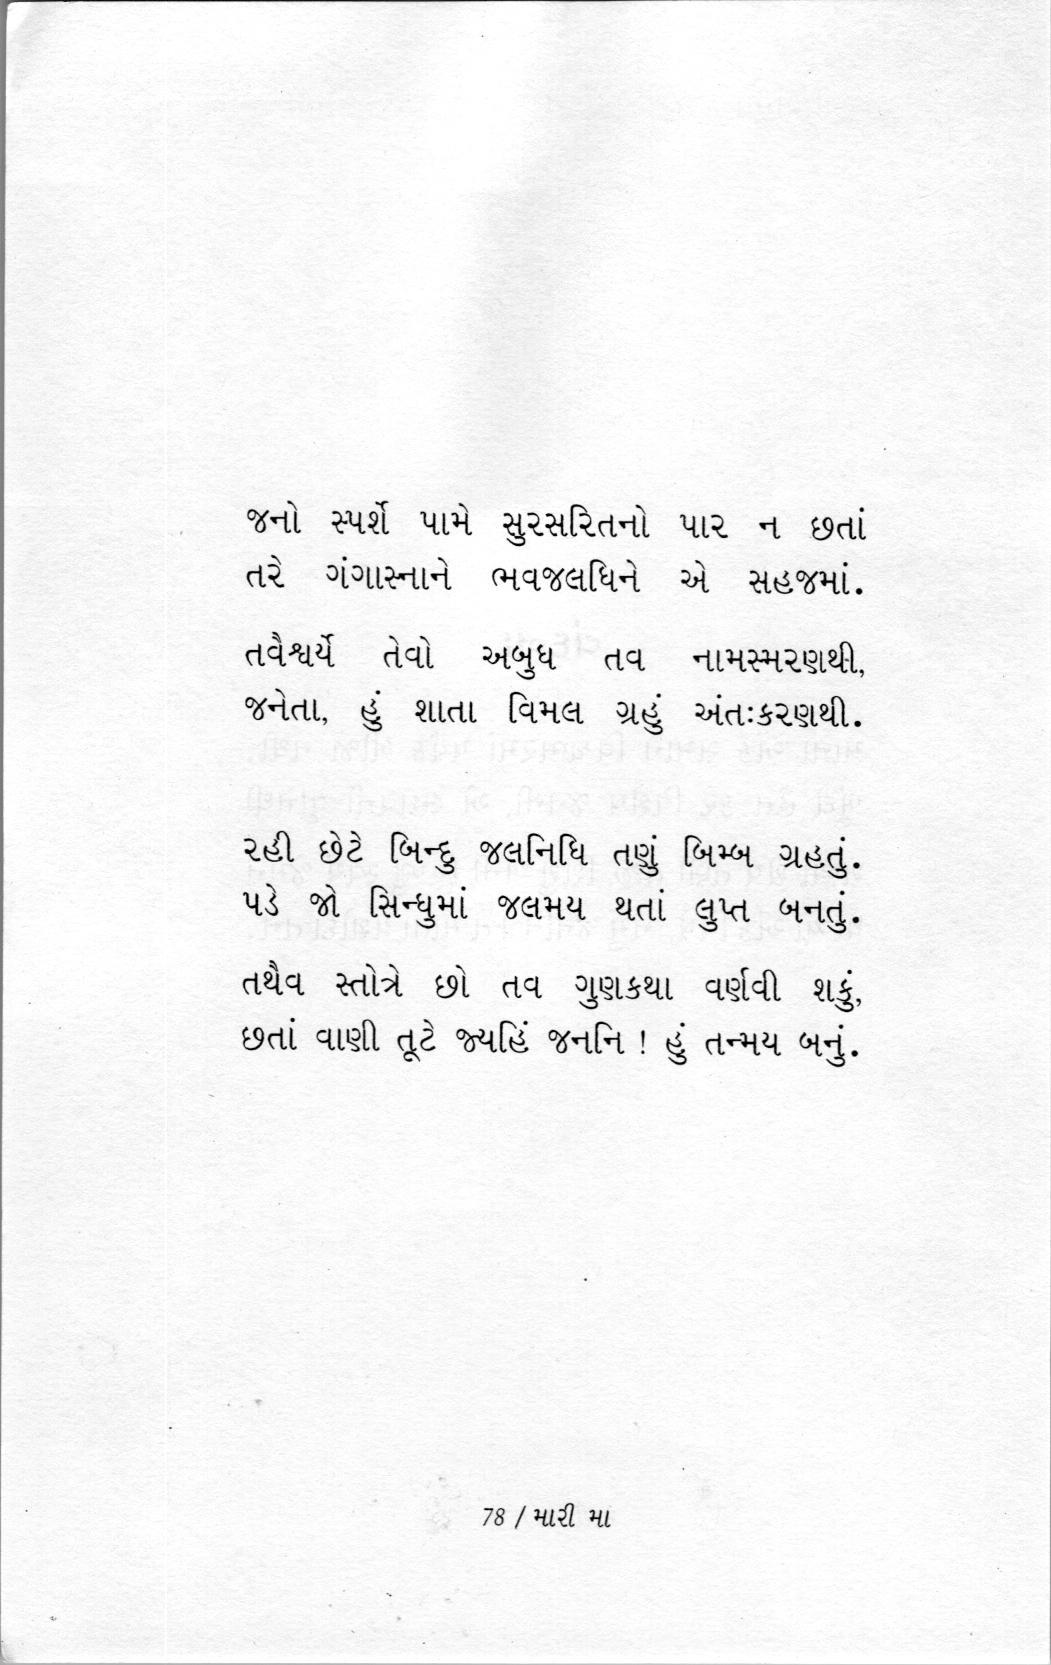 જનો સ્પર્શે પામે સુરસરિતનો પાર ન છતાં
તરે ગંગાસ્નાને ભવજલધિને એ સહજમાં.
તવૈશ્વર્યે તેવો અબુધ તવ નામસ્મરણથી,
જનેતા, હું શાતા વિમલ ગ્રહું અંતઃકરણથી.
રહી છેટે બિન્દુ જલનિધિ તણું બિમ્બ ગ્રહતું.
પડે જો સિન્ધુમાં જલમય થતાં લુપ્ત બનતું.
તથૈવ સ્તોત્રે છો તવ ગુણકથા વર્ણવી શકું,
છતાં વાણી તૂટે જ્યહિં જનનિ ! હું તન્મય બનું.
78 / મારી મા